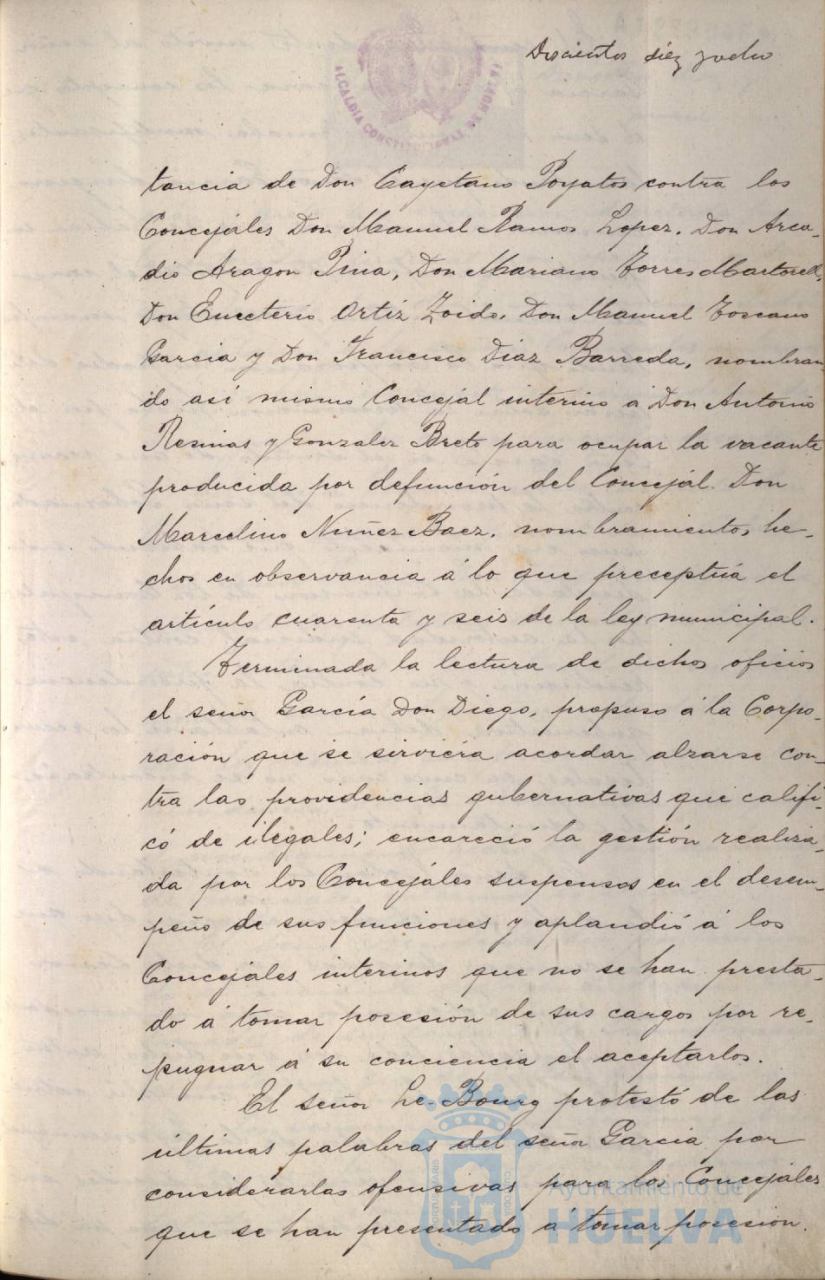 Doscientos diez y ocho
ALCALDIA CONSTITUCIONAL DE HUELVA
tancia de Don Cayetano Poyatos contra los
Concejáles Don Manuel Ramos Lopez, Don Arca-
dio Aragon Pina, Don Mariano Torres Martorell,
Don Euceterio Ortiz Zoido, Don Manuel Toscano
Garcia y Don Francisco Diaz Barreda, nombran
do así mismo Concejál interino á Don Antonio
Resinas y Gonzalez Breto para ocupar la vacante
producida por defunción del Concejál Don
Marcelino Nuñez Baez, nombramientos, he-
chos en observancia á lo que preceptúa el
artículo cuarenta y seis de la ley municipal.
Terminada la lectura de dichos oficios
el señor García Don Diego, propuso á la Corpo-
ración que se sirviera acordar alzarse con-
tra las providencias gubernativas que califi-
có de ilegales; encareció la gestión realiza-
da por los Concejáles suspensos en el desem-
peño de sus funciones y aplaudió á los
Concejáles interinos que no se han presta-
do á tomar posesión de sus cargos por re-
pugnar á su conciencia el aceptarlos.
El señor Le-Bourg protestó de las
últimas palabras del señor Garcia por
considerarlas ofensivas para los Concejáles
que se han presentado á tomar posesión.
Ayuntamiento de
HUELVA